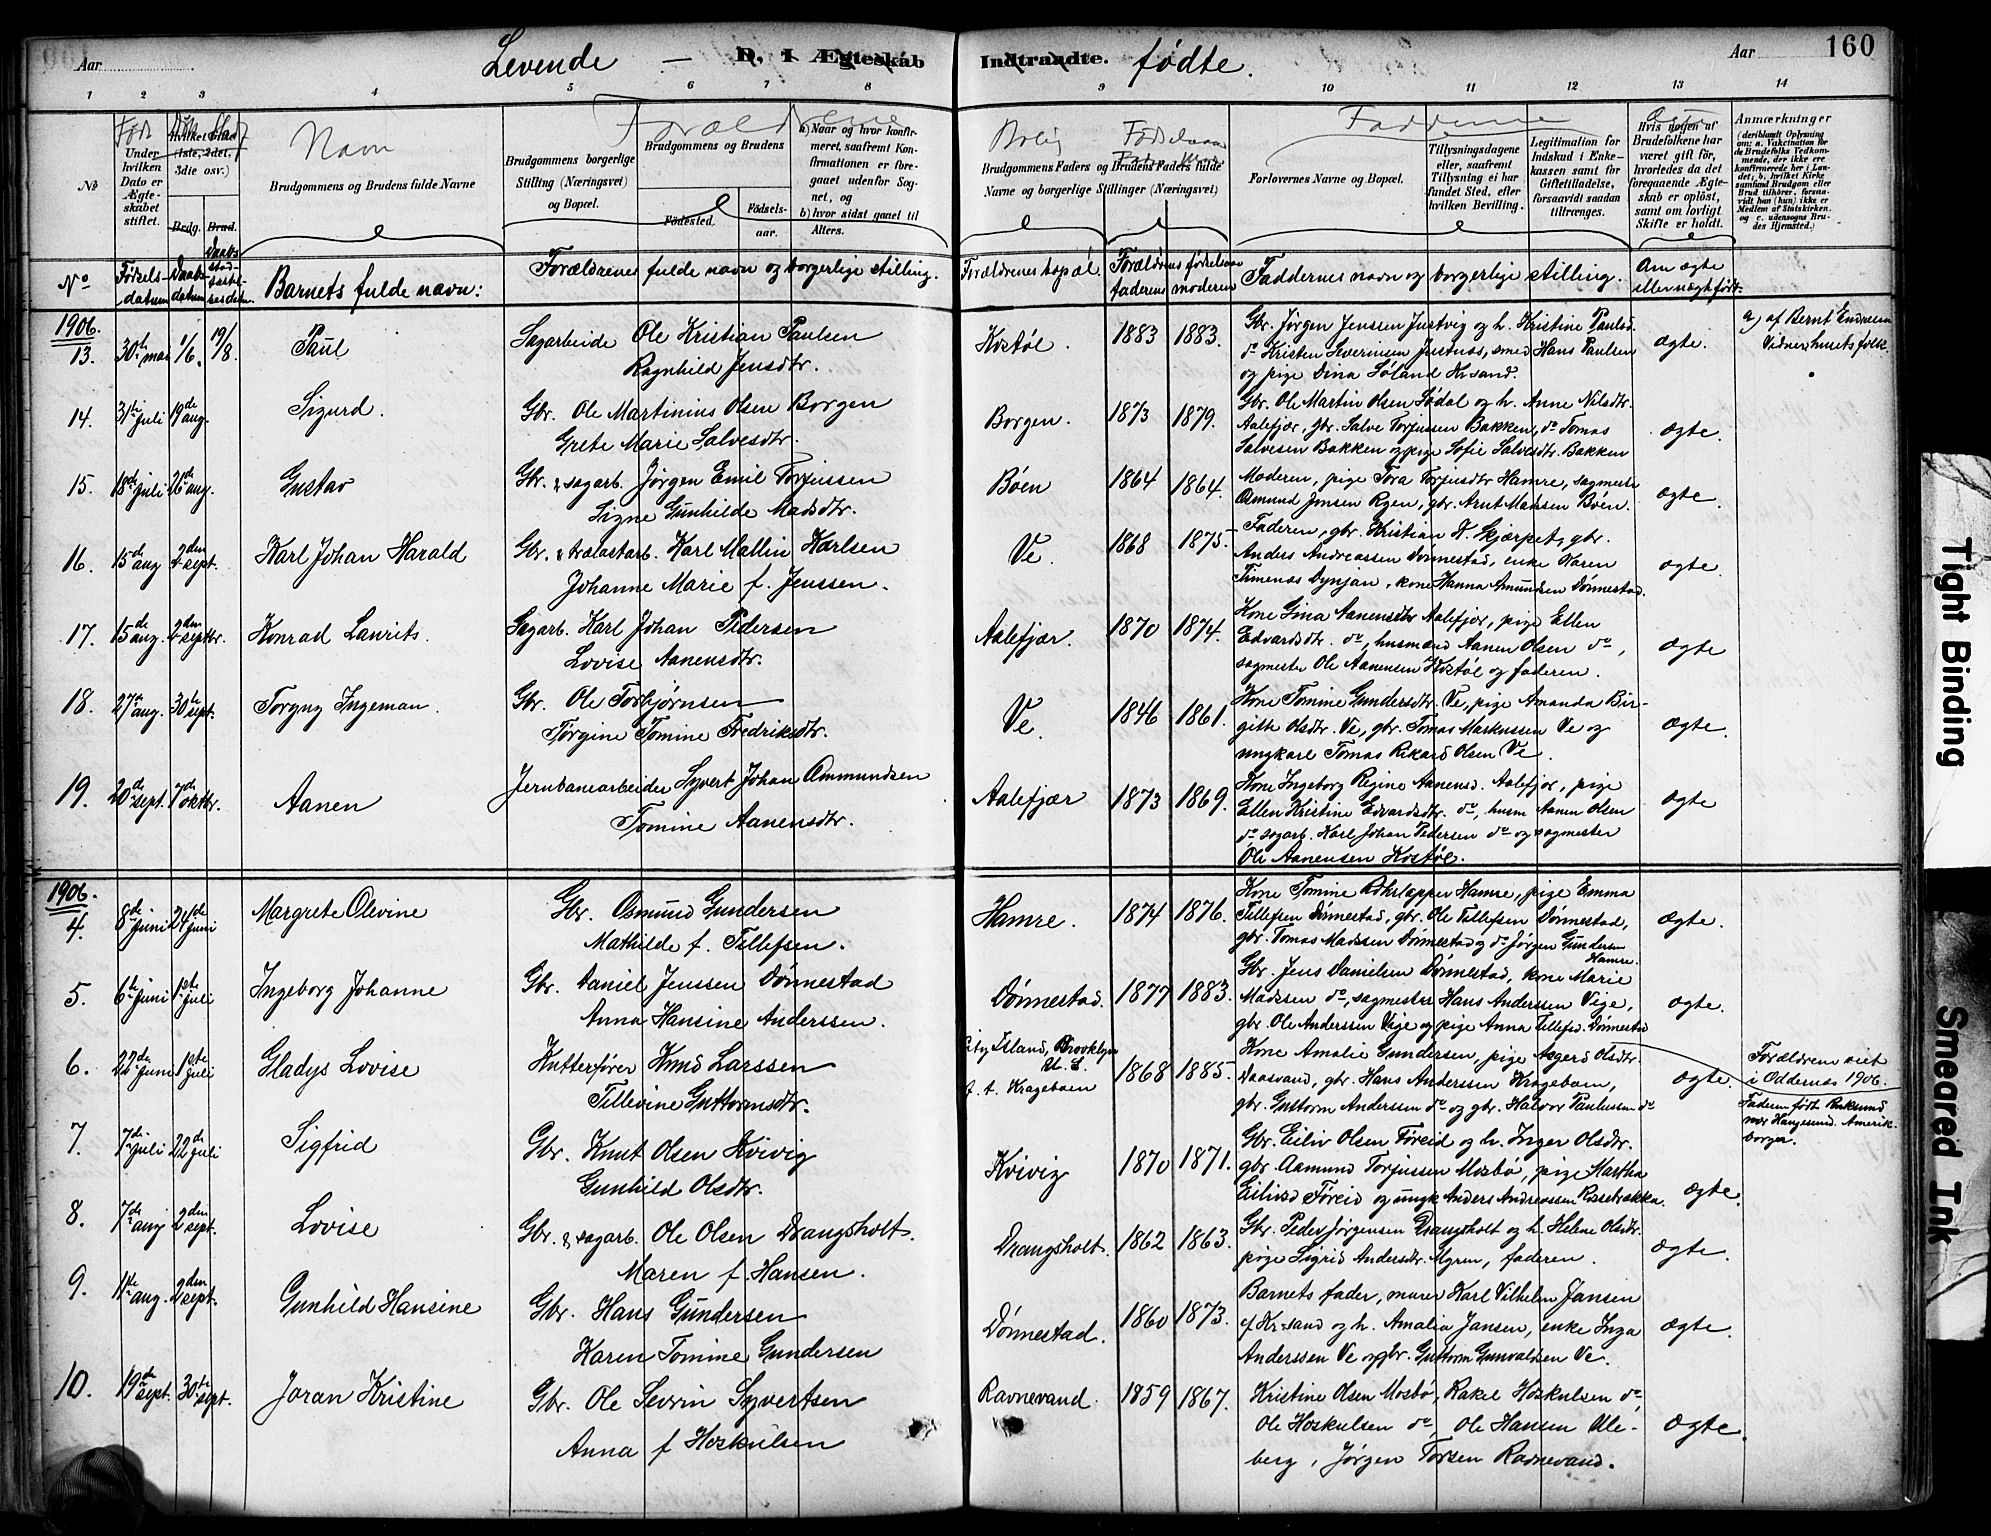 Aar
Levende — D. I Ægteskab Indtraadte. fødte.
Aar
160
1 2 3 4 5 6 7 8 9 10 11 12 13 14
Navn
Forældrene
Bolig
Fadderne
No
Under hvilken Dato er Ægteskabet stiftet.
(1ste, 2det, 3die osv.)
Brdg. Brud.
Brudgommens og Brudens fulde Navne
Brudgommens borgerlige Stilling (Næringsvei) og Bopæl.
Brudgommens og Brudens
Fødested.
Fødselsaar.
a) Naar og hvor konfirmeret, saafremt Konfirmationen er foregaaet udenfor Sognet, og
b) hvor sidst gaaet til Alters.
Brudgommens Faders og Brudens Faders fulde Navne og borgerlige Stillinger (Næringsvei)
Forlovernes Navne og Bopæl.
Tillysningsdagene eller, saafremt Tillysning ei har fundet Sted, efter hvilken Bevilling.
Legitimation for Indskud i Enkekassen samt for Giftetilladelse, forsaavidt saadan tiltrænges.
Hvis nogen af Brudefolkene har været gift før, hvorledes da det foregaaende Ægteskab er opløst, samt om lovligt Skifte er holdt.
Anmærkninger
(deriblandt Oplysning om: a. Vaccination for de Brudefolks Vedkommende, der ikke ere konfirmerede her i Landet; b. hvilket Kirkesamfund Brudgom eller Brud tilhører, forsaavidt han (hun) ikke er Medlem af Statskirken, og c. udensogns Brudes Hjemsted.)
No Fødselsdatum Daabsdatum Barnets fulde navn: Forældrenes fulde navn og borgerlige stilling. Forældrenes bopæl. Forældrenes fødselsaar faderens moderens Faddernes navn og borgerlige stilling. Om ægte eller uægte født.
1906.
13. 30te mai 1/6. 19/8. Paul Sagarbeide Ole Kristian Paulsen Kostøl 1883 1883. Gbr. Jørgen Jenssen Justvig og h. Kristine Paulsd. ægte. a) af Bernt Endresen
Ragnhild Jensdtr. do Kristen Severinsen Justnæs, smed Hans Paulsen Vidner husets folk.
og pige Dina Søland Krsand.
14. 31te juli 19de aug. Sigurd. Gbr. Ole Martinius Olsen Borgen Borgen. 1873 1879. Gbr. Ole Martin Olsen Sødal og h. Anne Nilsdtr. ægte.
Grete Marie Salvesdtr. Aalefjær, gbr. Salve Torjussen Bakken, do Tomas
Salvesen Bakken og pige Sofie Salvesdtr. Bakken
15. 18de juli 26de aug. Gustav Gbr. & sagarb. Jørgen Emil Torjussen Bøen 1864 1864. Moderen, pige Tora Torjusdtr Hamre, sagmester ægte.
Signe Gunhilde Madsdtr. Osmund Jensen Ryen, gbr. Arnt Madsen Bøen.
16. 15de aug 2den sept. Karl Johan Harald Gbr. & trælastarb. Karl Mallin Karlsen Ve. 1868 1875. Faderen, gbr. Kristian K. Skjærpet, gbr. ægte.
Johanne Marie f. Jenssen. Anders Andreassen Dønnestad, enke Karen
Timenæs Dynjan, kone Hanna Amundsen Dønnestad.
17. 15de aug. 2den septbr. Konrad Laurits. Sagarb. Karl Johan Pedersen Aalefjær 1870 1874. Kone Gina Aanensdtr Aalefjær, pige Ellen ægte
Lovise Aanensdtr. Edvardsdtr. do, husmand Aanen Olsen do,
sagmester Ole Aanensen Kostøl og faderen.
18. 27de aug. 30te sept. Torgny Ingeman. Gbr. Ole Torbjørnsen Ve. 1846 1861. Kone Tomine Gundersdtr. Ve, pige Amanda Bir- ægte.
Torgine Tomine Fredriksdtr. gitte Olsdtr. Ve, gbr. Tomas Markussen Ve og
ungkarl Tomas Rikard Olsen Ve
19. 20de sept. 7de oktbr. Aanen Jernbanearbeider Syvert Johan Ommundsen Aalefjær 1873 1869. Kone Ingeborg Regine Aanensd. Aalefjær, pige ægte
Tomine Aanensdtr. Ellen Kristine Edvardsdtr. do, husm Aanen Olsen
do sagarb. Karl Johan Pedersen do og sagmester
Ole Aanensen Kostøl.
1906.
4. 8de juni 24de juni Margrete Olevine Gbr. Osmund Gundersen Hamre. 1874 1876. Kone Tomine Hamre, pige Emma ægte.
Mathilde f. Tellefsen. Tellefsen Dønnestad, gbr. Ole Tellefsen Dønnestad,
gbr. Tomas Madssen Dønnestad og do Jørgen Gundersen Hamre.
5. 6te juni 1ste juli Ingeborg Johanne Gbr. Daniel Jenssen Dønnestad Dønnestad. 1877 1883. Gbr. Jens Danielsen Dønnestad, kone Marie ægte.
Anna Hansine Anderssen. Madssen do, sagmester Hans Anderssen Vige,
gbr. Ole Anderssen Vige og pige Anna Tellefsd. Dønnestad
6. 22de juni 1ste juli Gladys Lovise Kutterfører Knud Larssen City Island, Brooklyn U. S. f. t. Krageboen 1868 1885. Kone Amalie Gundersen, pige Asgerd Olsdtr. ægte. Forældrene viet i Oddernes 1906.
Tillevine Guttormsdtr. Daasvand, gbr. Hans Anderssen Krageboen,
gbr. Guttorm Anderssen do og gbr. Halvor Paulssen do
Faderen født nær Haugesund. Amerik. borger.
7. 7de juli 22de juli Sigfrid Gbr. Knut Olsen Kvivig Kvivig 1870 1871. Gbr. Eiliv Olsen Føreid og h. Inger Olsdtr. ægte.
Gunhild Olsdtr. gbr. Aasmund Torjussen Mosbø, pige Martha
Eilivsd Føreid og ungk Anders Andreassen
8. 7de aug 2den sept. Lovise Gbr. & sagarb. Ole Olsen Drangsholt. Drangsholt. 1862 1863. Gbr. Peder Jørgensen Drangsholt og h. Helene Olsdtr. ægte.
Maren f. Hansen. pige Sigrid Andersdtr. Myren, faderen.
9. 11te aug. 2den sept. Gunhild Hansine Gbr. Hans Gundersen Dønnestad. 1860 1873. Barnets fader, murer Karl Vilhelm Jansen ægte.
Karen Tomine Gundersen af Kr=sand og h. Amalia Jansen, enke Inga
Anderssen Ve og gbr. Guttorm Gunvaldsen Ve.
10. 19de sept. 30te sept. Joran Kristine Gbr. Ole Severin Syvertsen Ravnevand. 1859 1867. Kristine Olsen Mosbø, Rakel Hoskulsen do, ægte.
Anna f Hoskulsen Ole Hoskulsen do, Ole Hansen Ule-
berg, Jørgen Torsen Ravnevand.
Tight Binding
Smeared Ink